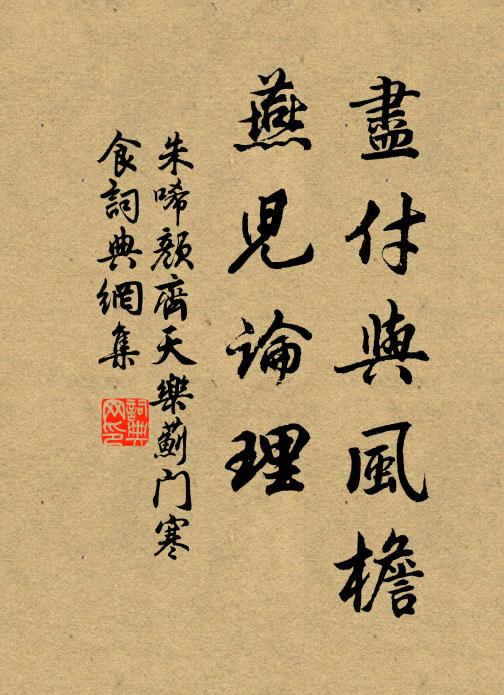 盡付與風檐
燕兒論理
朱唏顏齊天樂薊門寒
食詞典網集
詞典
网印